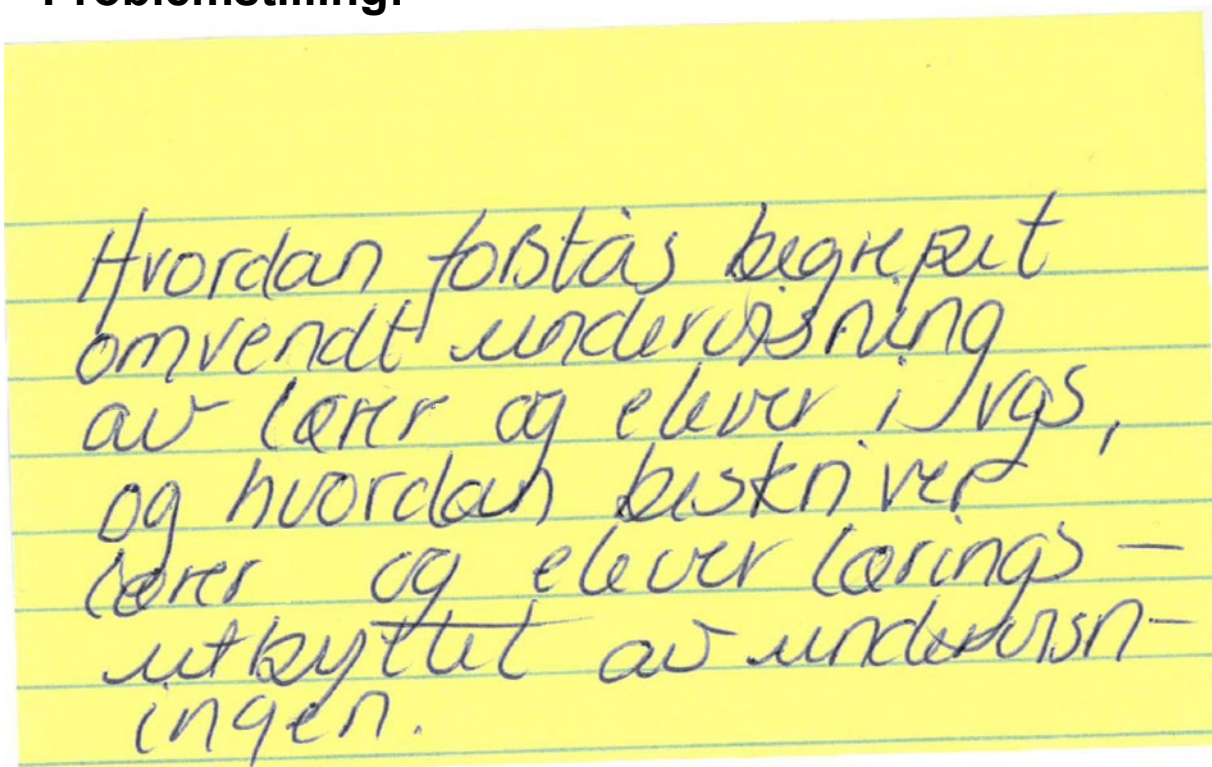 Problemstilling:
Hvordan forstås begrepet
omvendt undervisning
av lærer og elever i vgs,
og hvordan beskriver
lærer og elever lærings-
utbyttet av undervisn-
ingen.